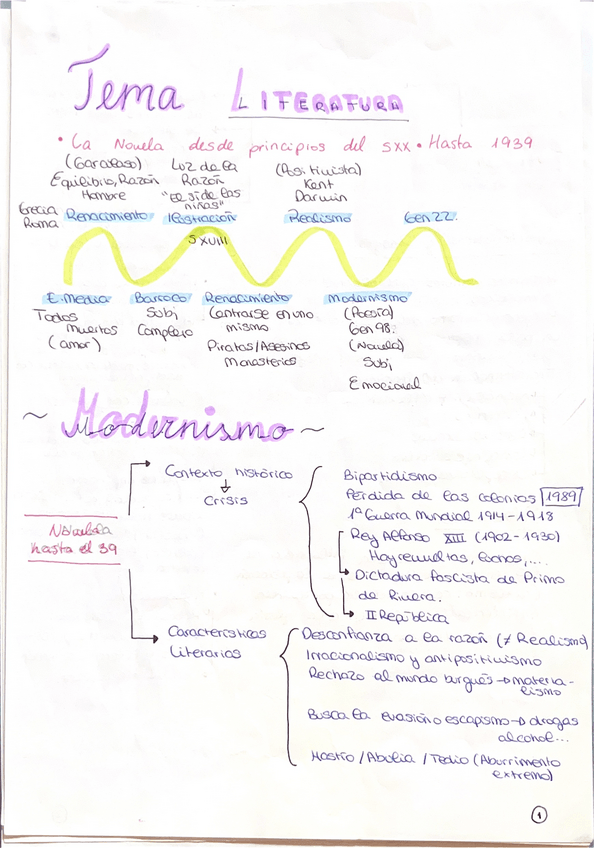 Tema LITERATURA
• La Novela desde principios del SXX • Hasta 1939
(Garcilaso)
Equilibrio, Razón
Hombre
Luz de la
Razón
"El sí de las
niñas"
(Positivista)
Kent
Darwin
Grecia
Roma
Renacimiento
Ilustración
Realismo
Gen 27.
S XVIII
E. Media
Todos
muertos
(amor)
Barroco
Subj
Complejo
Renacimiento
Centrarse en uno
mismo
Piratas/Asesinos
Monasterios
Modernismo
(Poesía)
Gen 98.
(Novela)
Subj
Emocional
~ Modernismo ~
Novela
hasta el 39
Contexto histórico
↓
Crisis
Bipartidismo
Pérdida de las colonias 1989
1ª Guerra Mundial 1914-1918
Rey Alfonso XIII (1902-1930)
Hay revueltas, ....
Dictadura fascista de Primo
de Rivera.
II República
Características
Literarias
Desconfianza a la razón (≠ Realismo)
Irracionalismo y antipositivismo
Rechazo al mundo burgués → materia-
lismo
Busca la evasión o escapismo → drogas
alcohol...
Hastío / Abulia / Tedio (Aburrimiento
extremo)
1